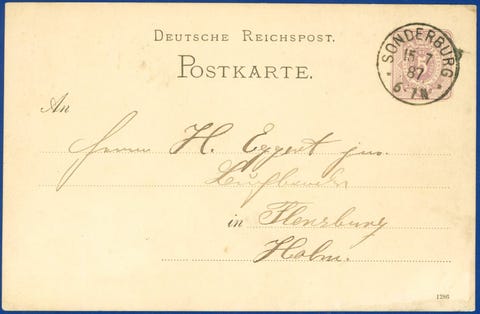 DEUTSCHE REICHSPOST.
POSTKARTE.
SONDERBURG
15 7
87
6-7N
An
Herrn H. Eggert jun.
in Flensburg
Holm.
1286